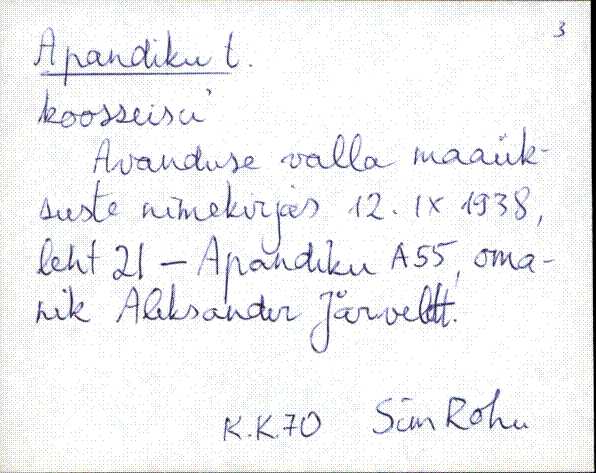 3
Apandiku t.
koosseisu
Avanduse valla maaük-
suste nimekirjas 12. IX 1938,
leht 21 – Apandiku A55, oma-
nik Aleksander Järvelt.
K.K.70 Sim Rohu